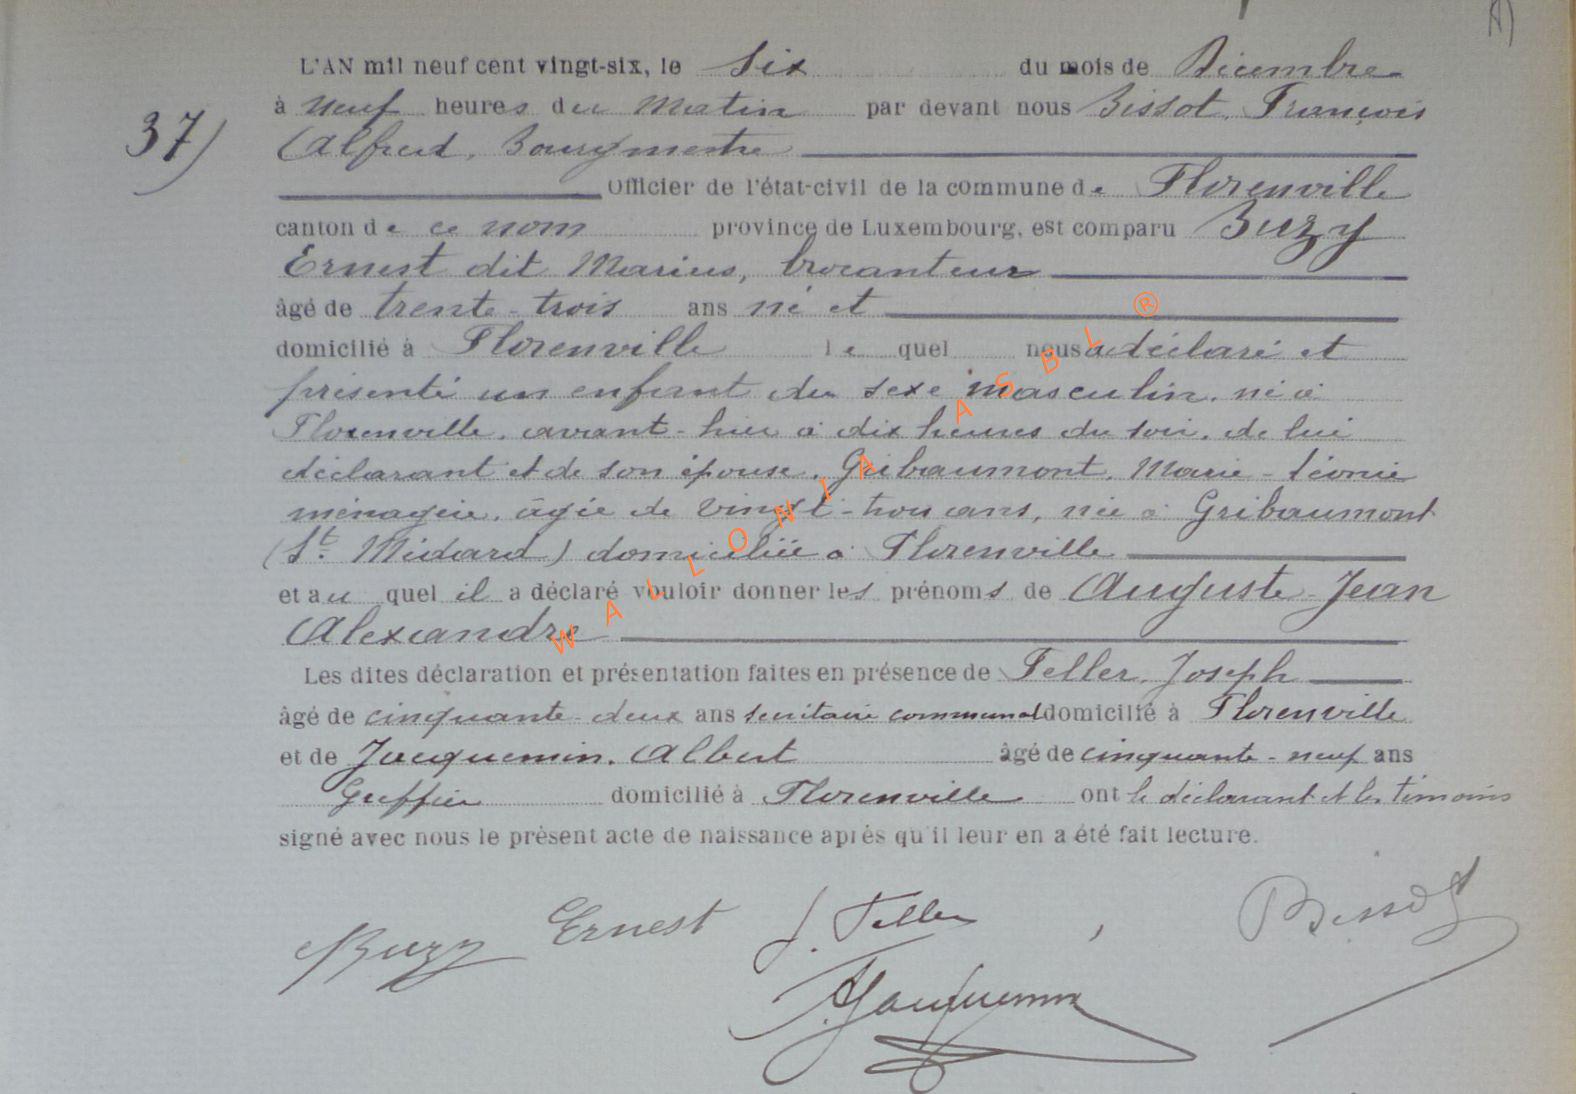 A)
L'AN mil neuf cent vingt-six, le Six du mois de Décembre
à neuf heures du Matin par devant nous Bissot, François
37)
Alfred, Bourgmestre
Officier de l'état-civil de la commune de Florenville
canton de ce nom province de Luxembourg, est comparu Buzy
Ernest dit Marius, brocanteur
âgé de trente-trois ans né et
domicilié à Florenville le quel nous a déclaré et
présenté un enfant du sexe masculin, né à
Florenville, avant-hier à dix heures du soir, de lui
déclarant et de son épouse, Gribaumont, Marie-Léonie
ménagère, âgée de vingt-trois ans, née à Gribaumont
(St Médard) domiciliée à Florenville
et au quel il a déclaré vouloir donner les prénoms de Auguste-Jean
Alexandre
Les dites déclaration et présentation faites en présence de Feller, Joseph
âgé de cinquante-deux ans secrétaire communal domicilié à Florenville
et de Jacquemin, Albert âgé de cinquante-neuf ans
Greffier domicilié à Florenville ont le déclarant et les témoins
signé avec nous le présent acte de naissance après qu'il leur en a été fait lecture.
Buzy Ernest J. Feller Bissot
A. Jacquemin
WALLONIA ASBL ®